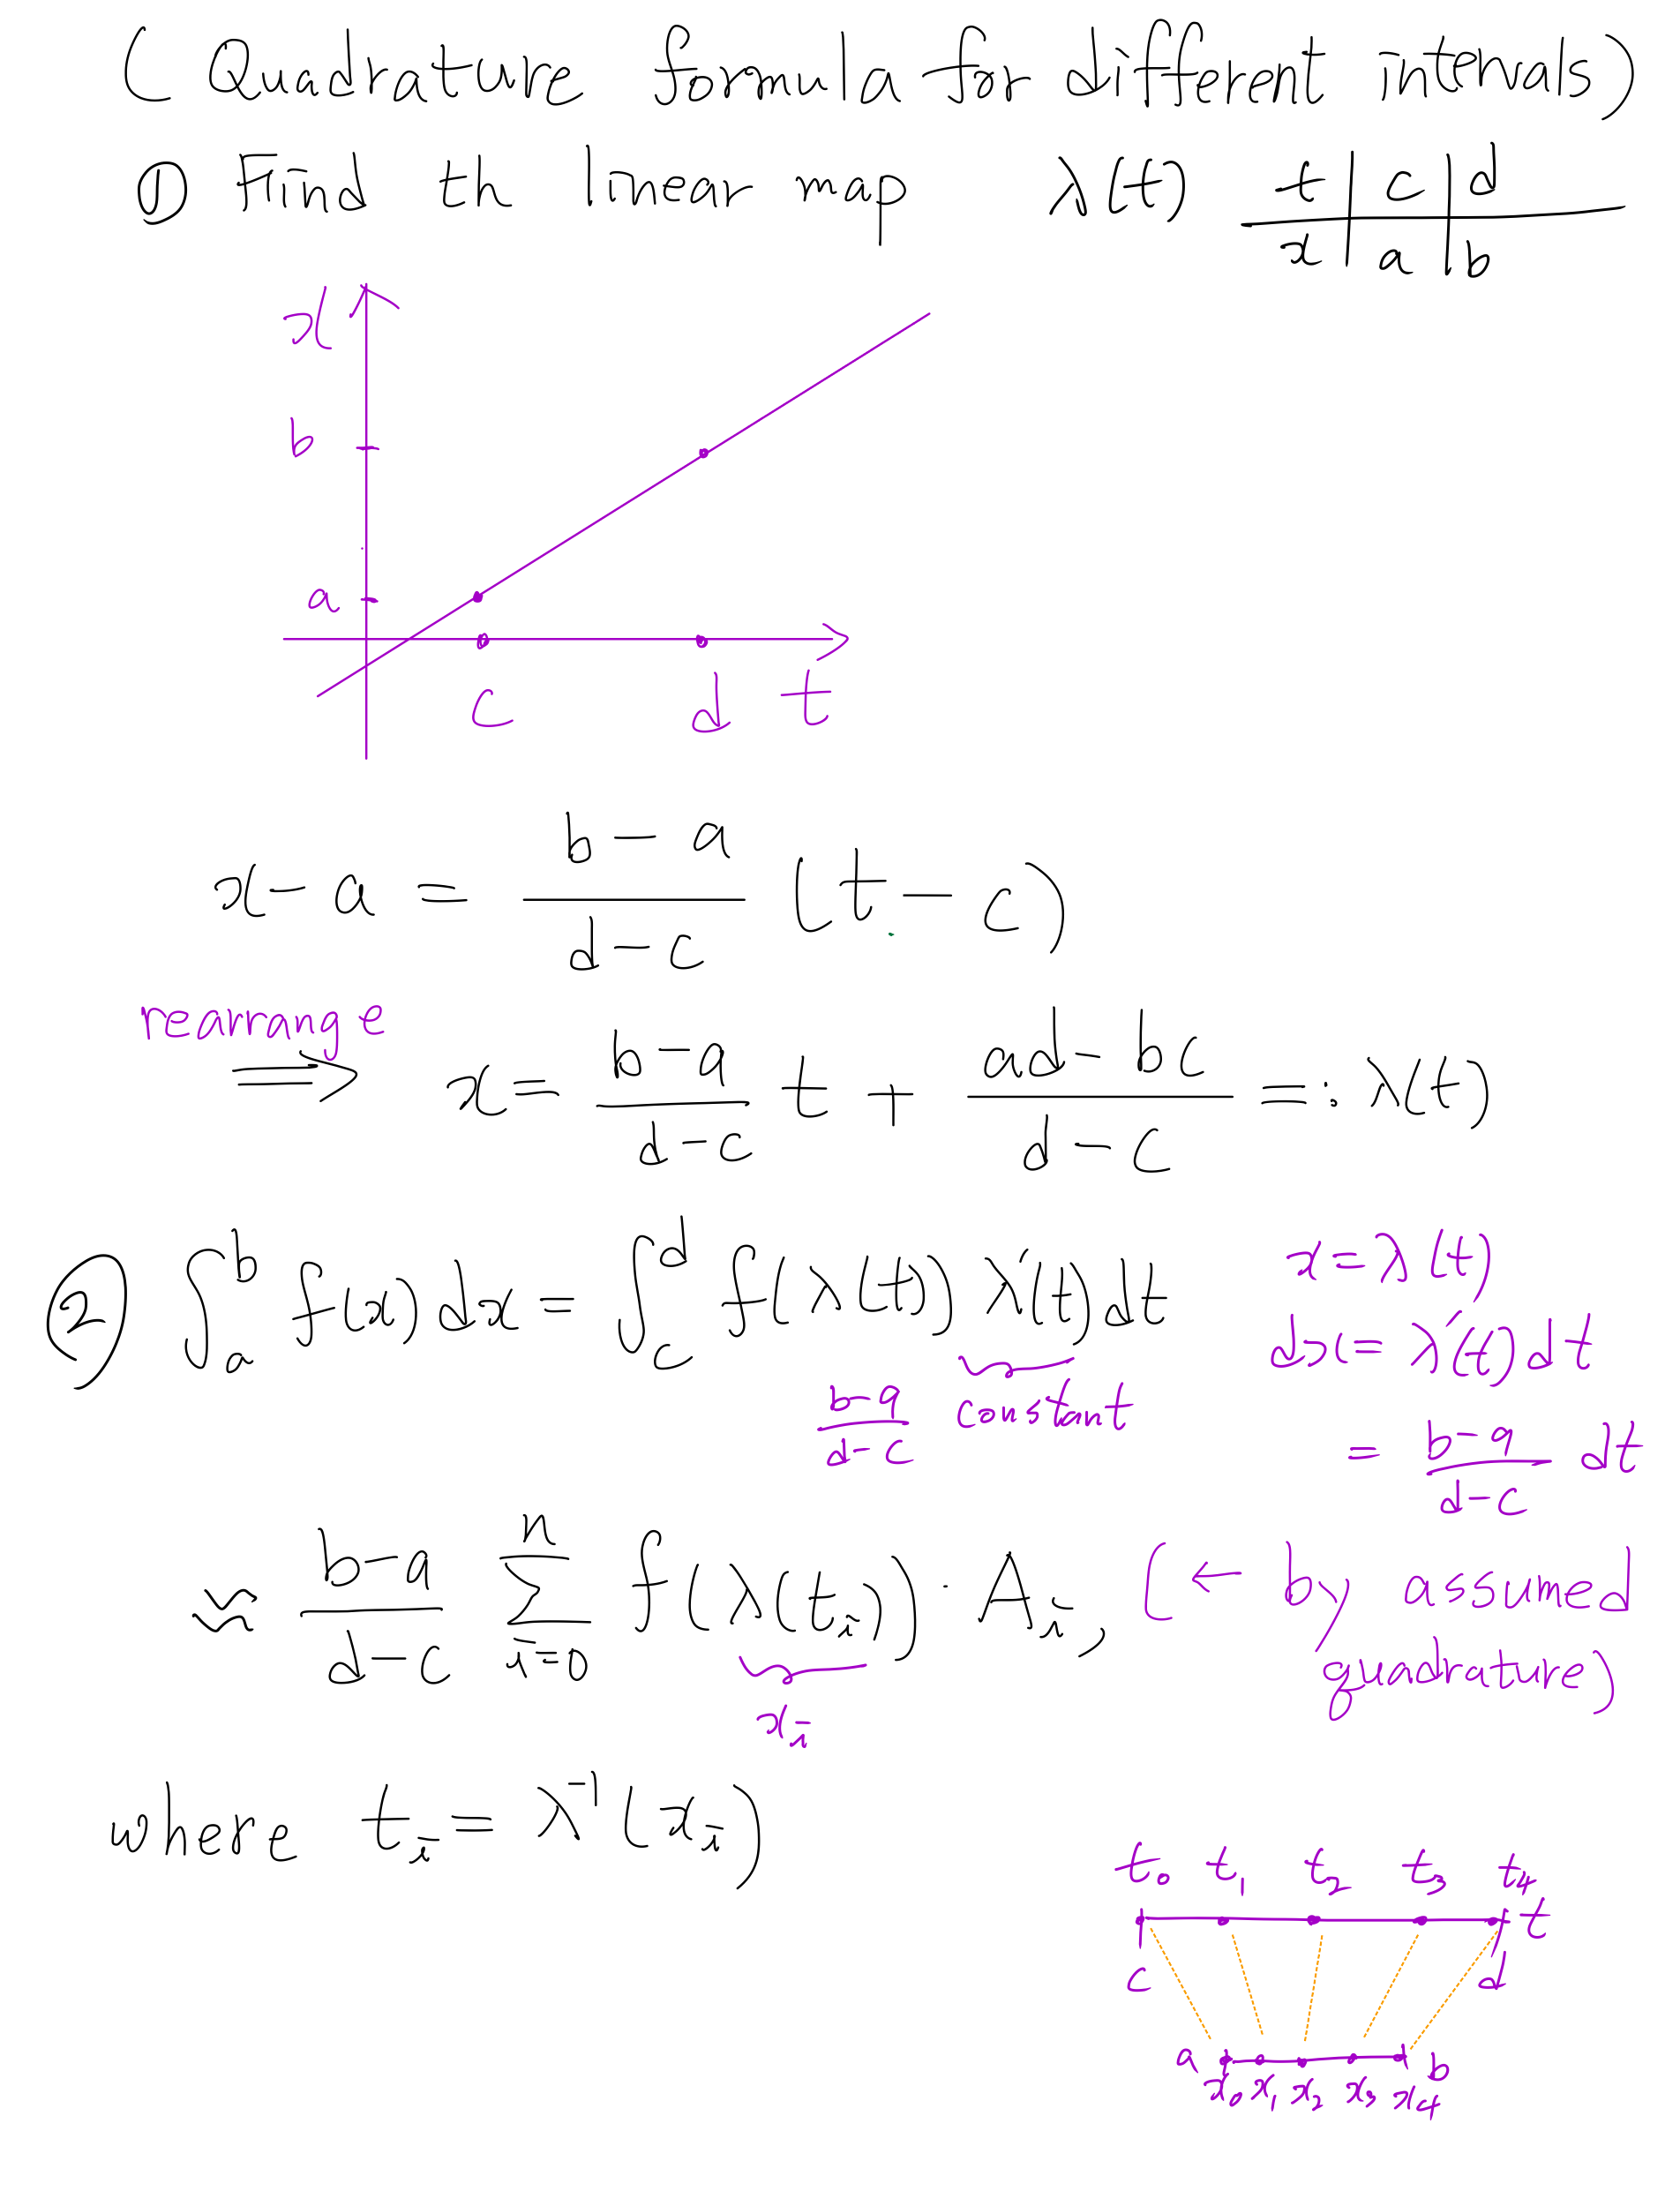 ( Quadrature formula for different intervals)
① Find th linear map λ(t) t | c | d
x | a | b
x
b
a
c d t
x - a = \frac{b-a}{d-c} (t - c)
rearrange
⟹ x = \frac{b-a}{d-c} t + \frac{ad-bc}{d-c} =: λ(t)
② ∫_a^b f(x) dx = ∫_c^d f(λ(t)) λ'(t) dt
x = λ(t)
dx = λ'(t) dt
\frac{b-a}{d-c} constant
= \frac{b-a}{d-c} dt
≈ \frac{b-a}{d-c} \sum_{i=0}^{n} f(λ(t_i)) · A_i, (← by assumed
quadrature)
x_i
where t_i = λ^{-1}(x_i)
t_0 t_1 t_2 t_3 t_4
t
c d
a b
x_0 x_1 x_2 x_3 x_4